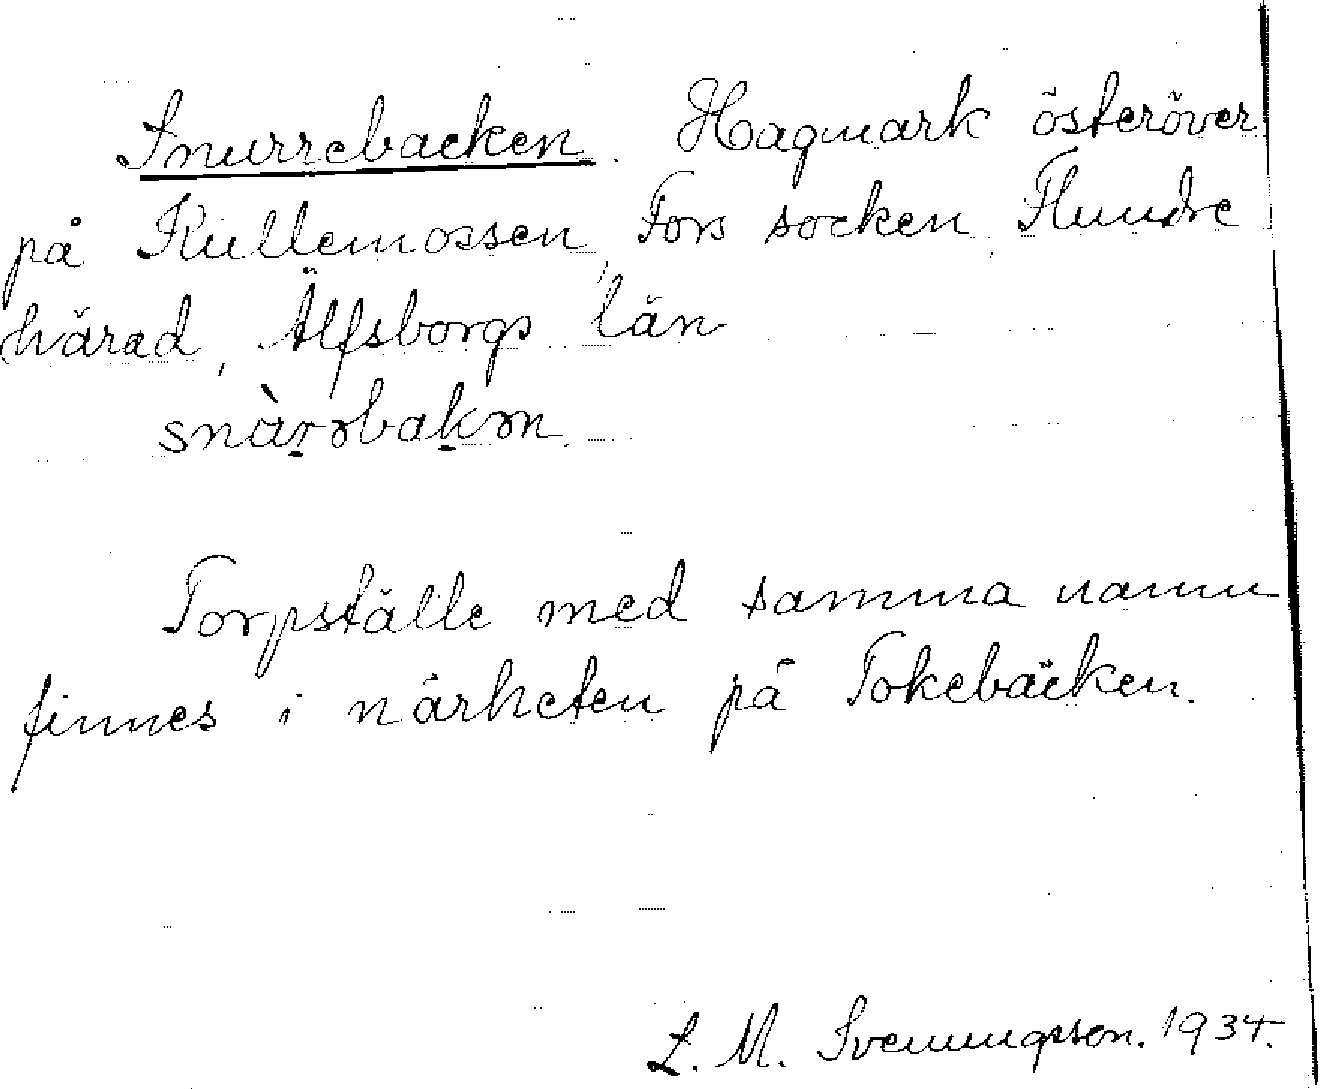 Snurrebacken. Hagmark österöver
på Kullemossen, Fors socken, Flundre
härad, Älfsborgs län
snàrrbakɷn.
Torpställe med samma namn
finnes i närheten på Tokebäcken.
L. M. Svenungsson. 1934.